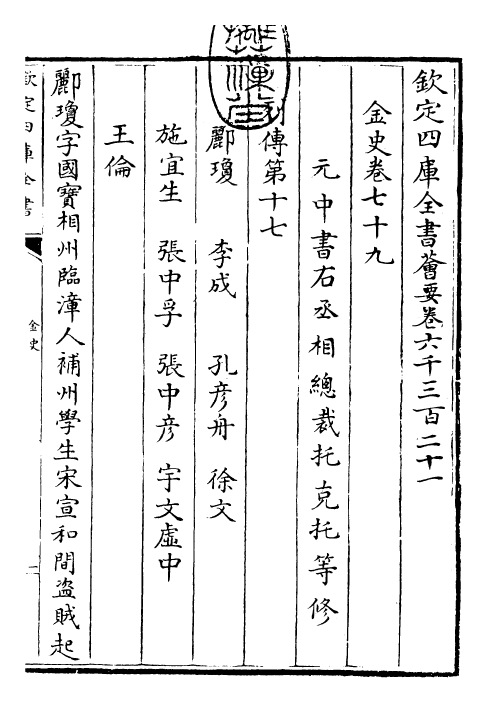 欽定四庫全書薈要卷六千三百二十一
金史卷七十九
元中書右丞相總裁托克托等修
列傳第十七
酈瓊 李成 孔彥舟 徐文
施宜生 張中孚 張中彥 宇文虛中
王倫
酈瓊字國寶相州臨漳人補州學生宋宣和間盜賊起
欽定四庫全書
金史
一